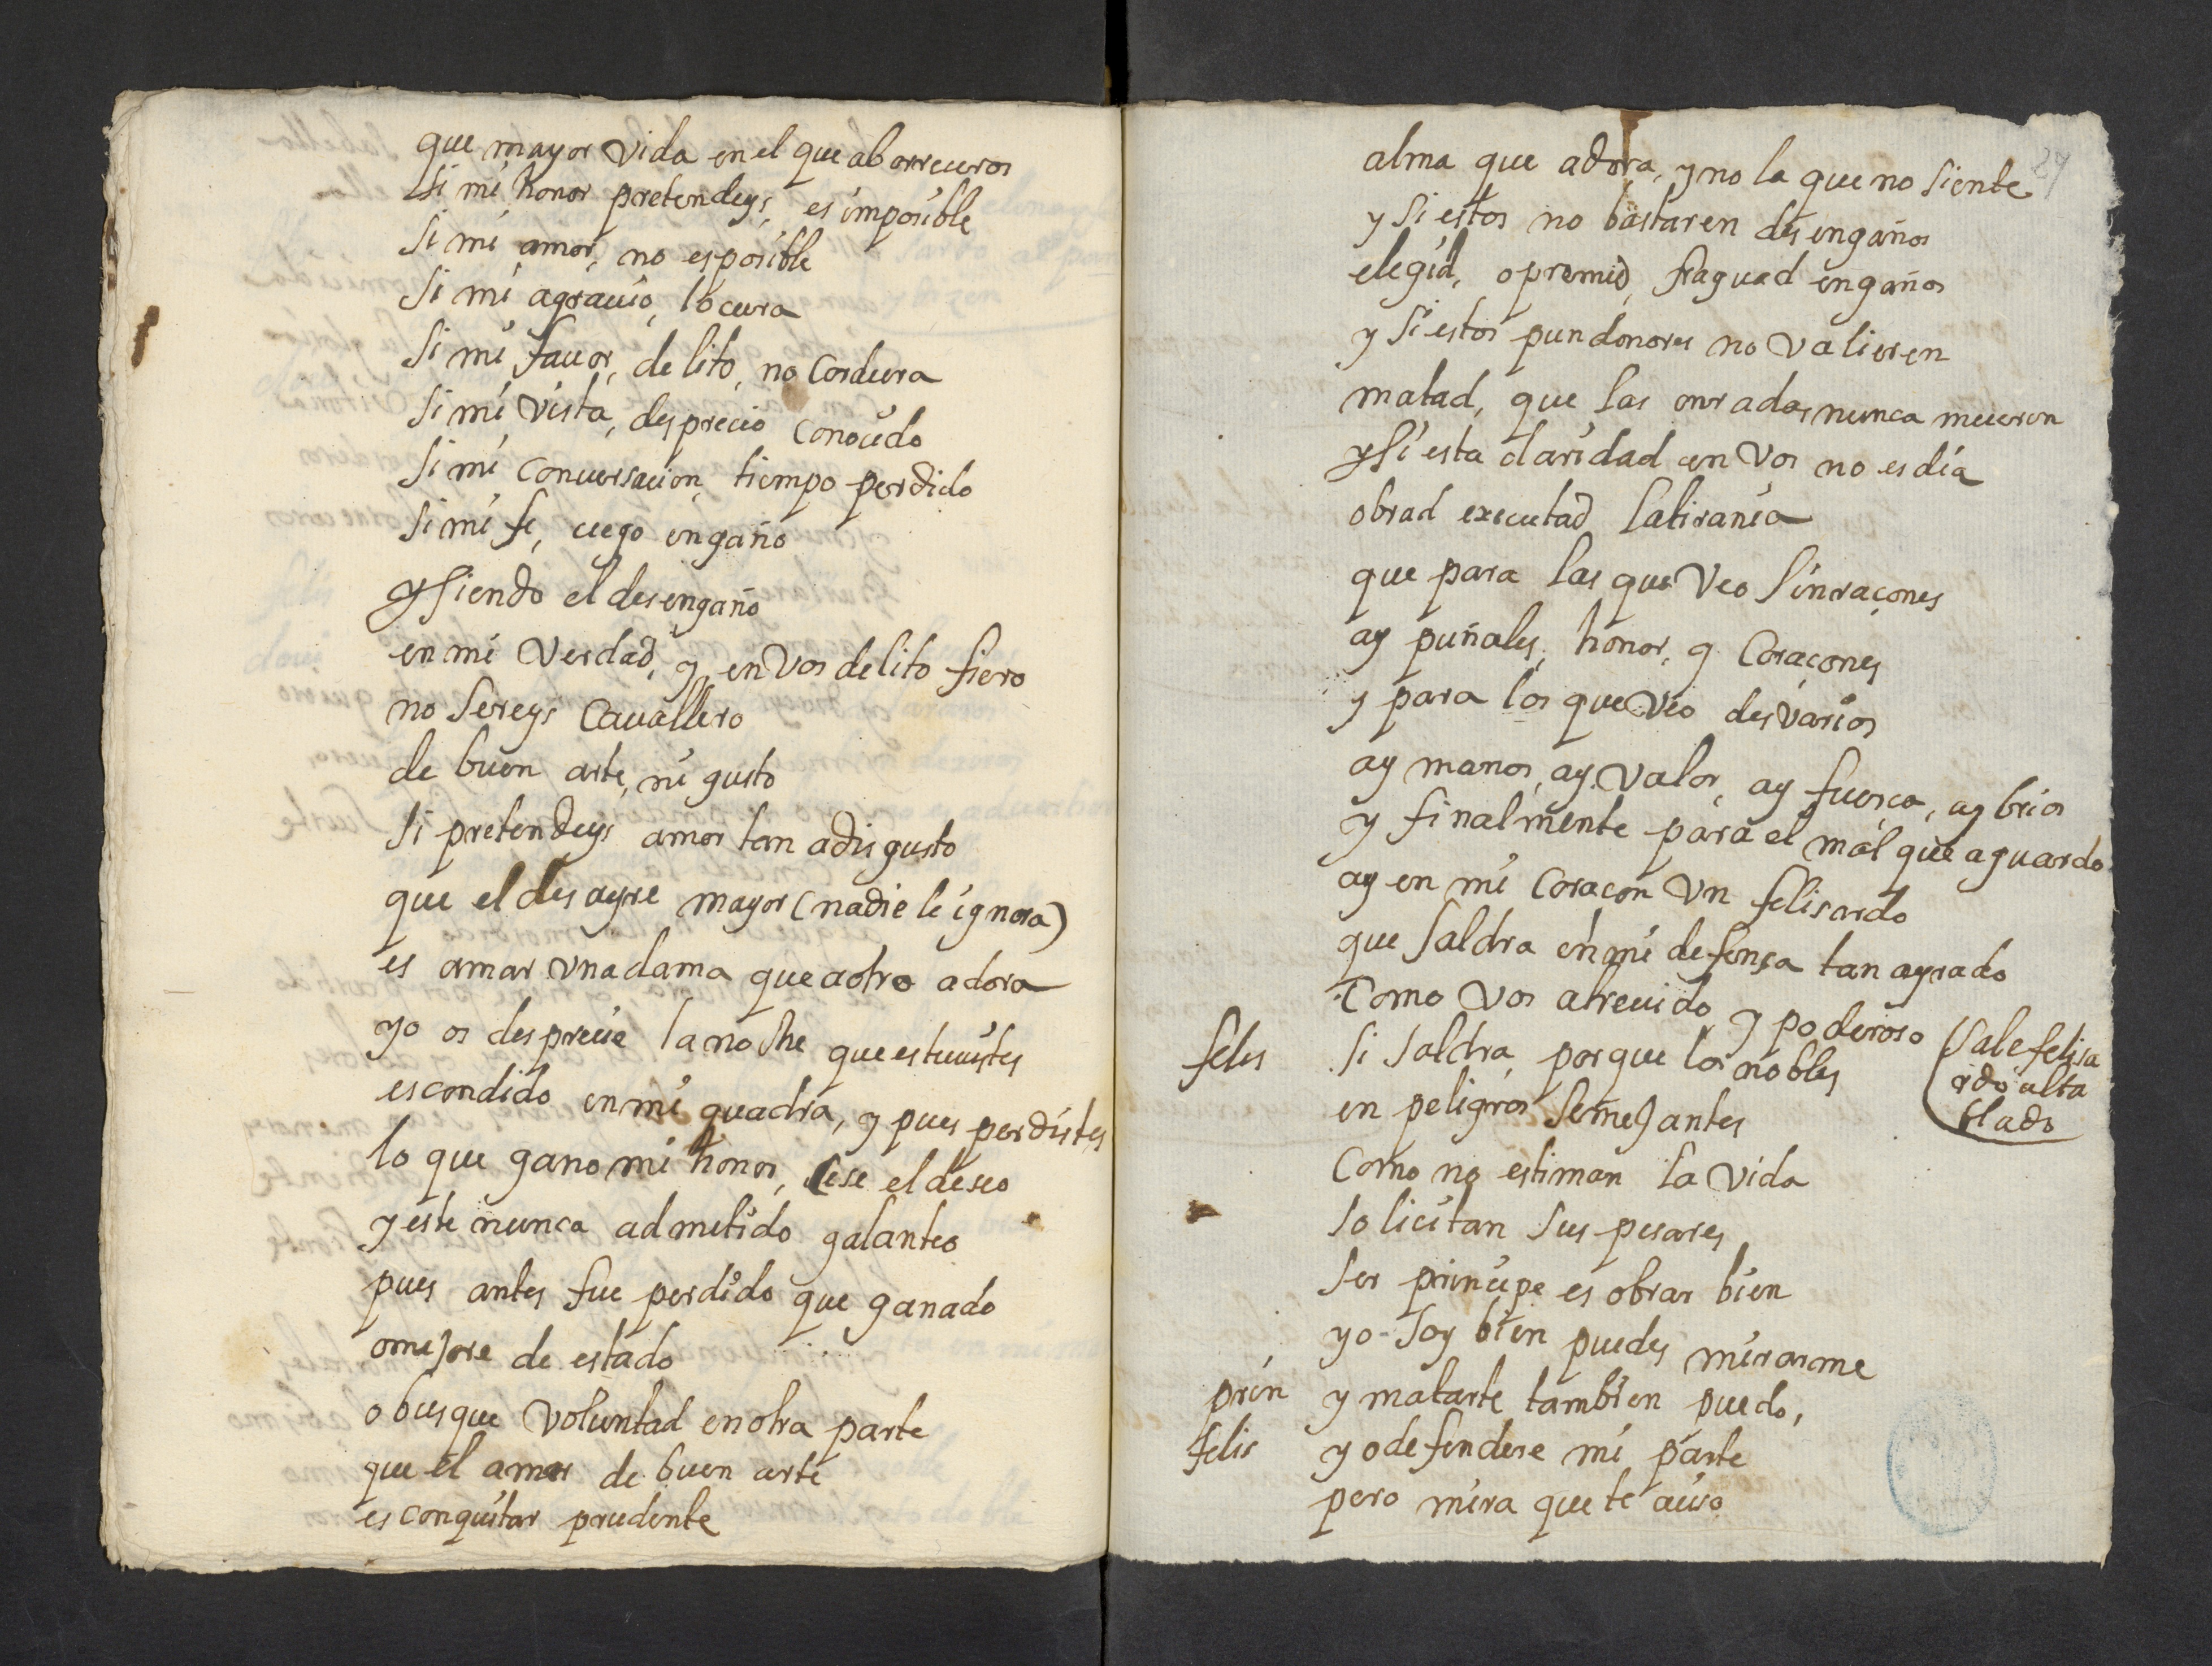 que mayor vida en el que aborreceros
si mi honor pretendeys, es imposible
si mi amor, no es posible
si mi agrauio, locura
si mi fauor, delito, no cordura
si mi vista, desprecio conocido
si mi conuersacion, tiempo perdido
si mi fe, ciego engaño
y siendo el desengaño
en mi verdad, y en vos delito fiero
no sereys cauallero
de buen arte, ni gusto
si pretendeys amor tan a disgusto
que el desayre mayor (nadie le ignora)
es amar vna dama que a otro adora
yo os desprecie la noche que estuuistes
escondido en mi quadra, y pues perdistes
lo que gano mi honor, cese el deseo
y este nunca admetido galanteo
pues antes fue perdido que ganado
o mejore de estado
o busque voluntad en otra parte
que el amor de buen arte
es conquistar prudente
24
alma que adora, y no la que no siente
y si estos no bastaren desengaños
elegid, opremid, fraguad engaños
y si estos pundonores no valieren
matad, que las onradas nunca mueren
y si esta claridad en vos no es dia
obrad executad la tirania
que para las que veo sinraçones
ay puñales, honor, y coraçones
y para los que veo desvarios
ay manos, ay valor, ay fuerça, ay brios
y finalmente para el mal que aguardo
ay en mi coraçon vn felisardo
que saldra en mi defença tan ayrado
como vos atreuido y poderoso
(sale felisa
rdo al ta
blado
felis si saldra, porque los nobles
en peligros semejantes
como no estiman la vida
solicitan sus pesares
ser principe es obrar bien
yo soy bien puedes mirarme
prin y matarte tambien puedo,
felis yo defendere mi parte
pero mira que te auiso